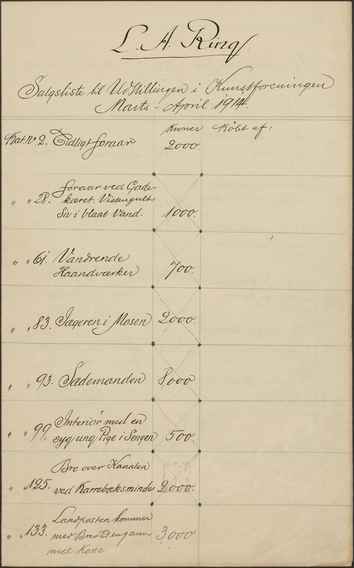 L. A. Ring
Salgsliste til Udstillingen i Kunstforeningen
Marts - April 1914.
Kroner Købt af:
Kat. No 2. Tidligt foraar 2000.
" " 28. foraar ved Gade-
kæret.
Siv i blaat Vand. 1000.
" " 61. Vandrende
Haandværker 700.
" " 83. Jægeren i Mosen 2000
" " 93. Sædemanden 8000
" " 99. Interiør med en
syg ung Pige i Sengen 500.
" " 125. Bro over Kanalen
ved Karrebæksminde 2000.
" " 133. Landposten kommer
med
med Kone 3000